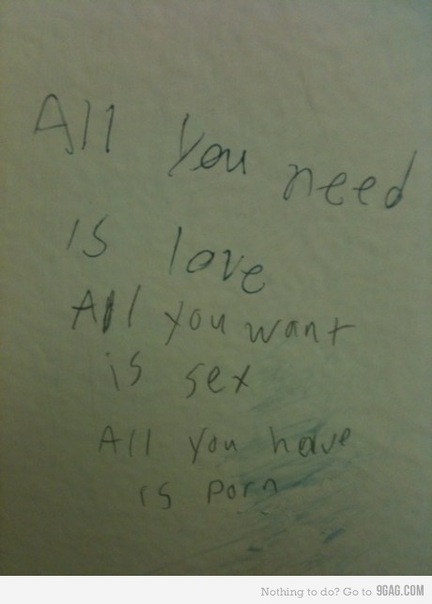 All you need
is love
All you want
is sex
All you have
is porn
Nothing to do? Go to 9GAG.COM